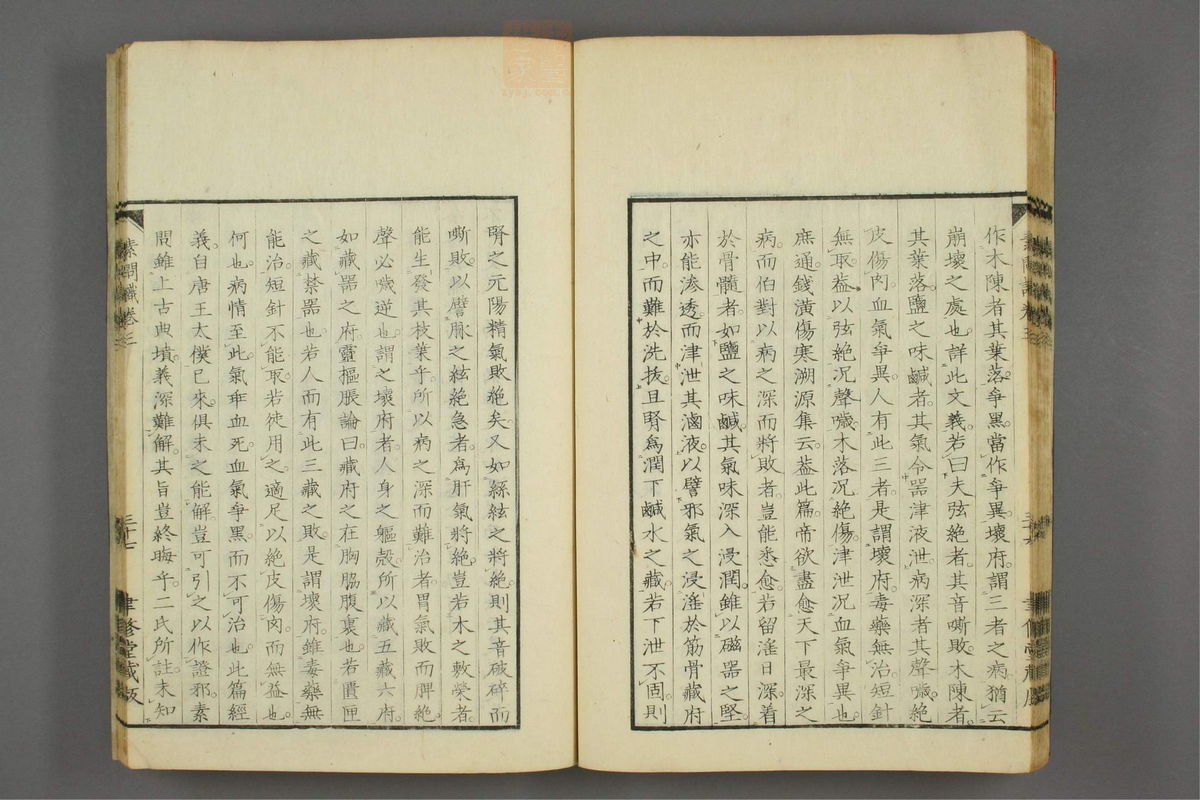 作木陳者其葉落爭黑當作爭異壞府謂三者之病猶云
崩壞之處也詳此文義若曰夫弦絶者其音嘶敗木陳者
其葉落鹽之味鹹者其氣令器津液泄病深者其聲噦絶
皮傷肉血氣爭異人有此三者是謂壞府毒藥無治短針
無取葢以弦絶況聲噦木落況絶傷津泄況血氣爭異也
庶通錢潢傷寒溯源集云葢此篇帝欲盡愈天下最深之
病而伯對以病之深而將敗者豈能悉愈若留淫日深着
於骨髓者如鹽之味鹹其氣味深入浸潤雖以磁器之堅
亦能滲透而津泄其滷液以譬邪氣之浸淫於筋骨藏府
之中而難於洗拔且腎爲潤下鹹水之藏若下泄不固則
腎之元陽精氣敗絶矣又如絲絃之將絶則其音破碎而
嘶敗以譬脈之絃絶急者爲肝氣將絶豈若木之敷榮者
能生發其枝葉乎所以病之深而難治者胃氣敗而脾絶
聲必噦逆也謂之壞府者人身之軀殼所以藏五藏六府
如藏器之府靈樞脹論曰藏府之在胸脇腹裏也若匱匣
之藏禁器也若人而有此三藏之敗是謂壞府雖毒藥無
能治短針不能取若徒用之適足以絶皮傷肉而無益也
何也病情至此氣乖血死血氣爭黑而不可治也此篇經
義自唐王太僕已來俱未之能解豈可引之以作證邪素
問雖上古典墳義深難解其旨豈終晦乎二氏所註未知
素問識卷三
三十七
聿修堂藏版